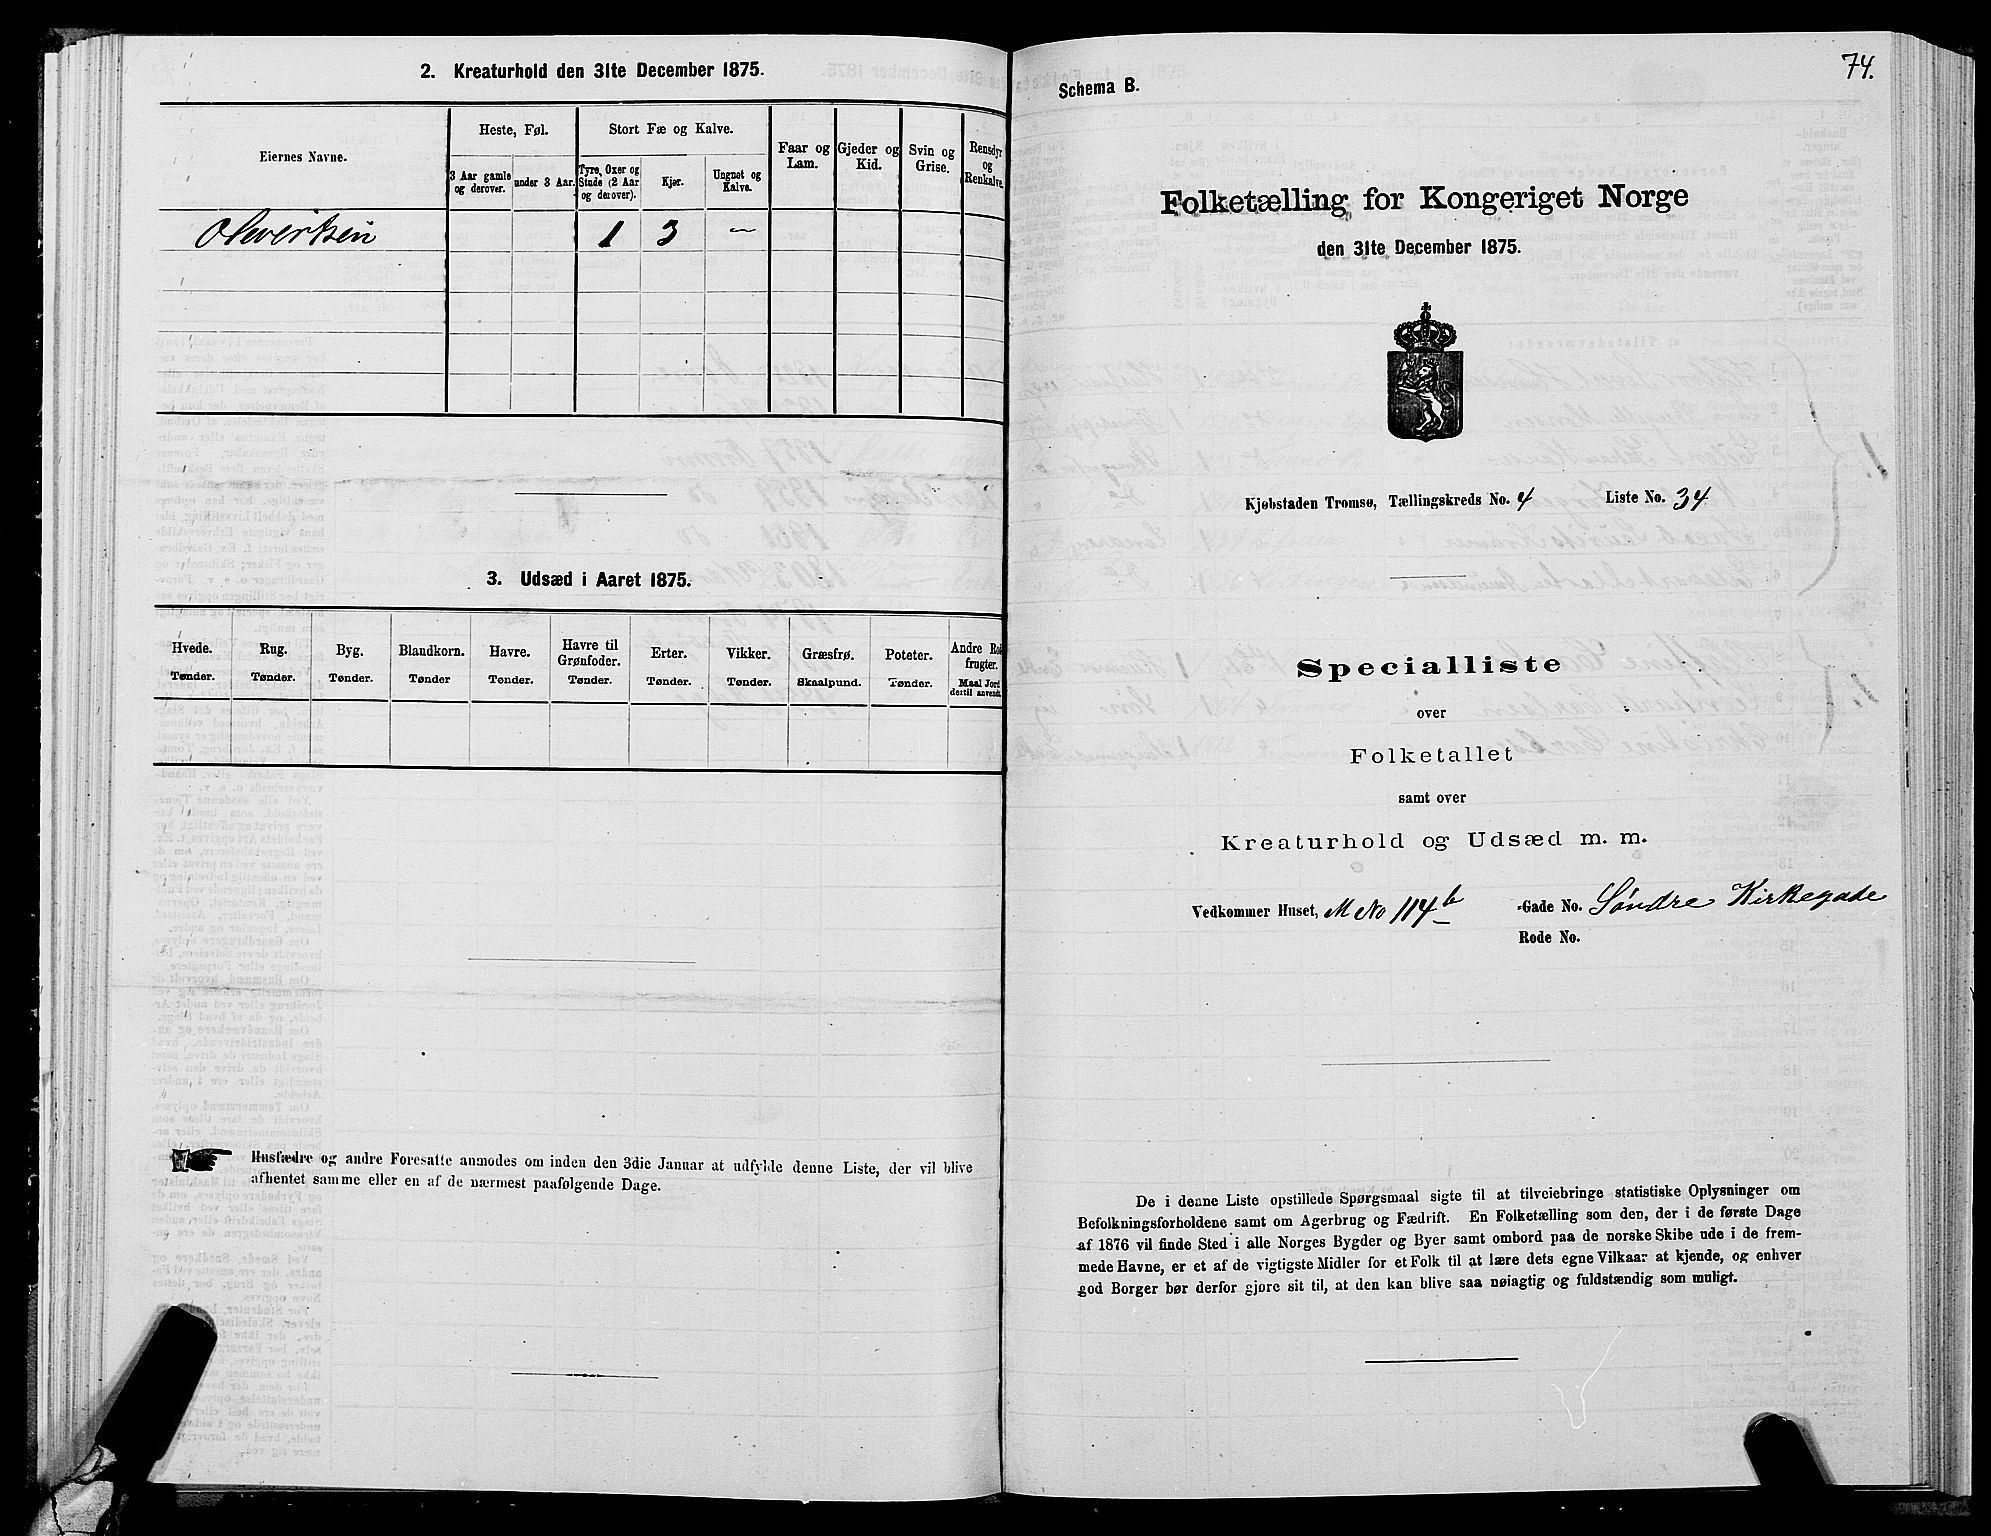 2. Kreaturhold den 31te December 1875.
Eiernes Navne.
Heste, Føl.
Stort Fæ og Kalve.
Faar og Lam.
Gjeder og Kid.
Svin og Grise.
Rensdyr og Renkalve.
3 Aar gamle og derover.
under 3 Aar.
Tyre, Oxer og Stude (2 Aar og derover).
Kjør.
Ungnøt og Kalve.
1 3 —
3. Udsæd i Aaret 1875.
Hvede. Rug. Byg. Blandkorn. Havre. Havre til Grønfoder. Erter. Vikker. Græsfrø. Poteter. Andre Rodfrugter.
Tønder. Tønder. Tønder. Tønder Tønder. Tønder. Tønder. Tønder. Skaalpund. Tønder. Maal Jord dertil anvendt.
Husfædre og andre Foresatte anmodes om inden den 3die Januar at udfylde denne Liste, der vil blive
afhentet samme eller en af de nærmest paafølgende Dage.
74.
Schema B.
Folketælling for Kongeriget Norge
den 31te December 1875.
Kjøbstaden Tromsø, Tællingskreds No. 4 Liste No. 34
Specialliste
over
Folketallet
samt over
Kreaturhold og Udsæd m. m.
Vedkommer Huset, M No 114b -Gade No. Søndre Kirkegade
Rode No.
De i denne Liste opstillede Spørgsmaal sigte til at tilveiebringe statistiske Oplysninger om
Befolkningsforholdene samt om Agerbrug og Fædrift. En Folketælling som den, der i de første Dage
af 1876 vil finde Sted i alle Norges Bygder og Byer samt ombord paa de norske Skibe ude i de frem-
mede Havne, er et af de vigtigste Midler for et Folk til at lære dets egne Vilkaar at kjende, og enhver
god Borger bør derfor gjøre sit til, at den kan blive saa nøiagtig og fuldstændig som muligt.